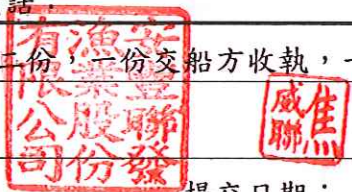 話：
二份，一份交船方收執，一
安豐聯發
漁業股份
有限公司
焦
威聯
提交日期：